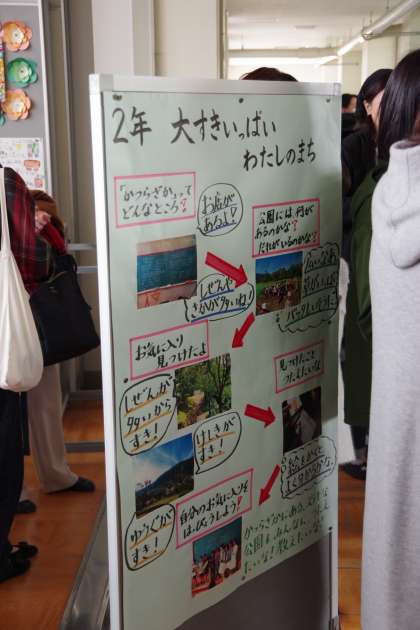 2年 大すきいっぱい
わたしのまち
「かつらざか」って
どんなところ?
お店が
あるよ!
公園には、何が
あるのかな?
だれがいるのかな?
しぜんや
さかが多いね!
お気に入り
見つけたよ
しぜんが
多いから
すき!
けしきが
すき!
ゆうぐが
すき!
見つけたこと
つたえたいな
自分のお気に入りを
はっぴょうしよう!
かつらざかにある、すてきな
公園を、みんなにつたえ
たいな!教えたいな!